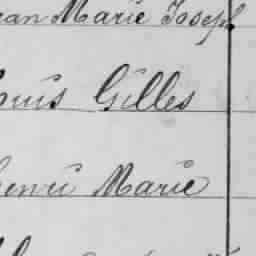 ean Marie Joseph
ouis Gilles
enri Marie